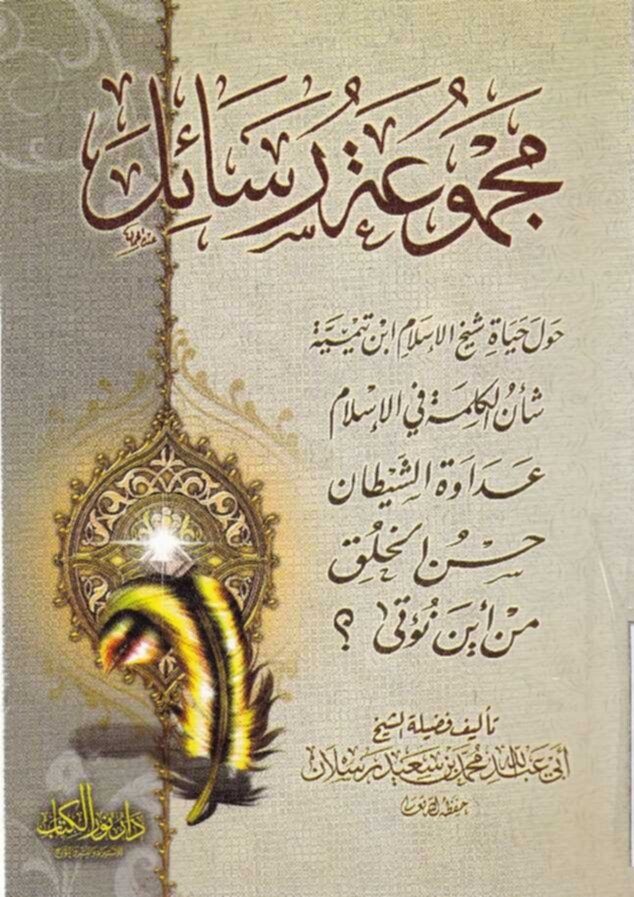 مَجْمُوعَةُ رَسَائِلَ
حَولَ حَيَاةِ شَيْخِ الإِسْلَامِ ابْنِ تَيْمِيَّةَ
شَأْنُ الكَلِمَةِ فِي الإِسْلَامِ
عَدَاوَةُ الشَّيْطَانِ
حُسْنُ الخُلُقِ
مِنْ أَيْنَ نُؤْتَى ؟
تأليف فضيلة الشيخ
أبي عبد الله محمد بن سعيد رسلان
حفظه الله تعالى
دار نور الكتاب